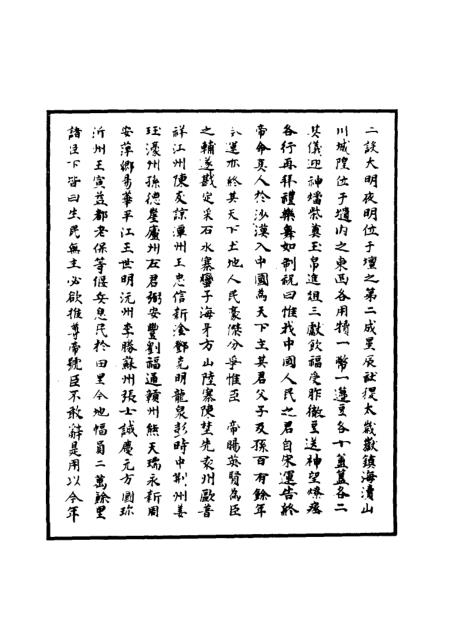 二設大明夜明位于壇之第二成星辰社稷太歲嶽鎮海瀆山
川城隍位于壝內之東西各用犢一幣一籩豆各十簠簋各二
其儀迎神燔柴奠玉帛進俎三獻飲福受胙徹豆送神望燎瘞
各行再拜禮樂舞如制祝曰惟我中國人民之君自宋運告終
帝命真人於沙漠入中國為天下主其君父子及孫百有餘年
今運亦終其天下土地人民豪傑分爭惟臣　帝賜英賢為臣
之輔遂戡定采石水寨蠻子海牙方山陸寨陳埜先袁州歐普
祥江州陳友諒潭州王忠信新淦鄧克明龍泉彭時中荆州姜
珏濠州孫德崖廬州左君弼安豐劉福通贛州熊天瑞永新周
安萍鄉易華平江王世明沅州李勝蘇州張士誠慶元方國珍
沂州王寅益都老保等偃兵息民於田里今地幅員二萬餘里
諸臣下皆曰生民無主必欲推尊帝號臣不敢辭是用以今年